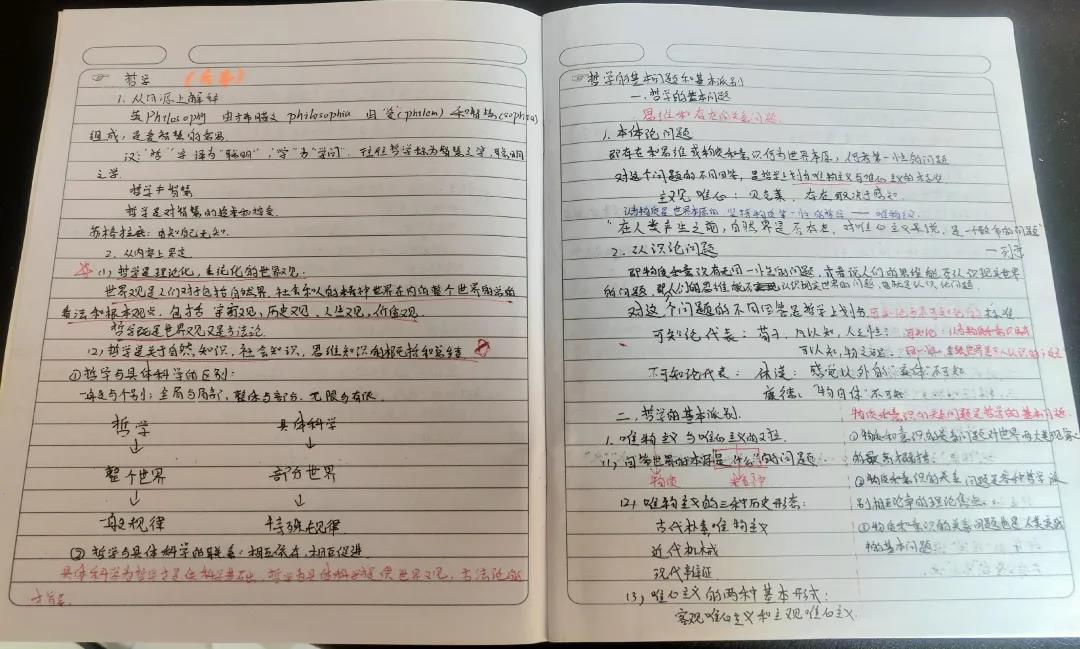 哲学
1. 从词源上解释
英Philosophy 由古希腊文 philosophia 由"爱"(philein)和"智慧"(sophia)
组成，是爱智慧的意思
汉："哲"字译为"聪明"，"学"为"学问"，往往哲学称为智慧之学，聪明
之学
哲学≠智慧
哲学是对智慧的追求和探究
苏格拉底：自知自己无知
2. 从内容上界定
(1) 哲学是理论化，系统化的世界观.
世界观是人们对包括自然界，社会和人的精神世界在内的整个世界的总的
看法和根本观点。包括宇宙观，历史观，人生观，价值观
哲学既是世界观又是方法论
(2) 哲学是关于自然知识，社会知识，思维知识的概括和总结
①哲学与具体科学的区别：
一般与个别；全局与局部，整体与部分，无限与有限
哲学 具体科学
整个世界 部分世界
一般规律 特殊规律
② 哲学与具体科学的联系：相互依存，相互促进
具体科学为哲学提供科学基础，哲学为具体科学提供世界观，方法论的
指导.
哲学的基本问题和基本派别
一.哲学的基本问题
思维和存在的关系问题
1. 本体论问题
即存在和思维或物质和意识何为世界本原，何者第一性的问题
对这个问题的不同回答，是哲学上划分唯物主义与唯心主义的标准
主观唯心：贝克莱，存在取决于感知
认为物质是世界本原的，坚持物质第一性 —— 唯物主义
"在人类产生之前，自然界是否存在，对唯心主义来说，是一个致命的问题"
—列宁
2. 认识论问题
即物质和意识有无同一性的问题，或者说人们的思维能否认识现实世界
的问题，
对这个问题的不同回答是哲学上划分可知论与不可知论的标准
可知论代表：荀子，凡以知，人之性；
可以知，物之理。
不可知论代表：休谟：感觉以外的"实体"不可知
康德："物自体"不可知
二. 哲学的基本派别
1. 唯物主义与唯心主义的对立
(1) 回答世界的本原是"什么"的问题
物质
(2) 唯物主义的三种历史形态：
古代朴素唯物主义
近代机械
现代辩证
(3) 唯心主义的两种基本形式：
客观唯心主义和主观唯心主义
物质和意识的关系问题是哲学的基本问题
①物质和意识的关系问题对世界两大类现象
的最高概括.
②物质和意识的关系问题是各种哲学派
别相互论争的理论焦点
③物质和意识的关系问题也是人类实践
的基本问题